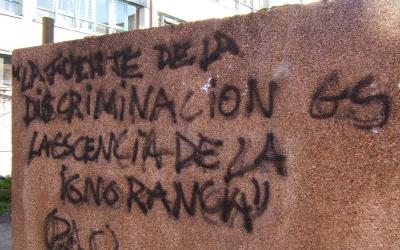 "LA FUENTE DE LA
DISCRIMINACION ES
LA ESCENCIA DE LA
IGNORANCIA"